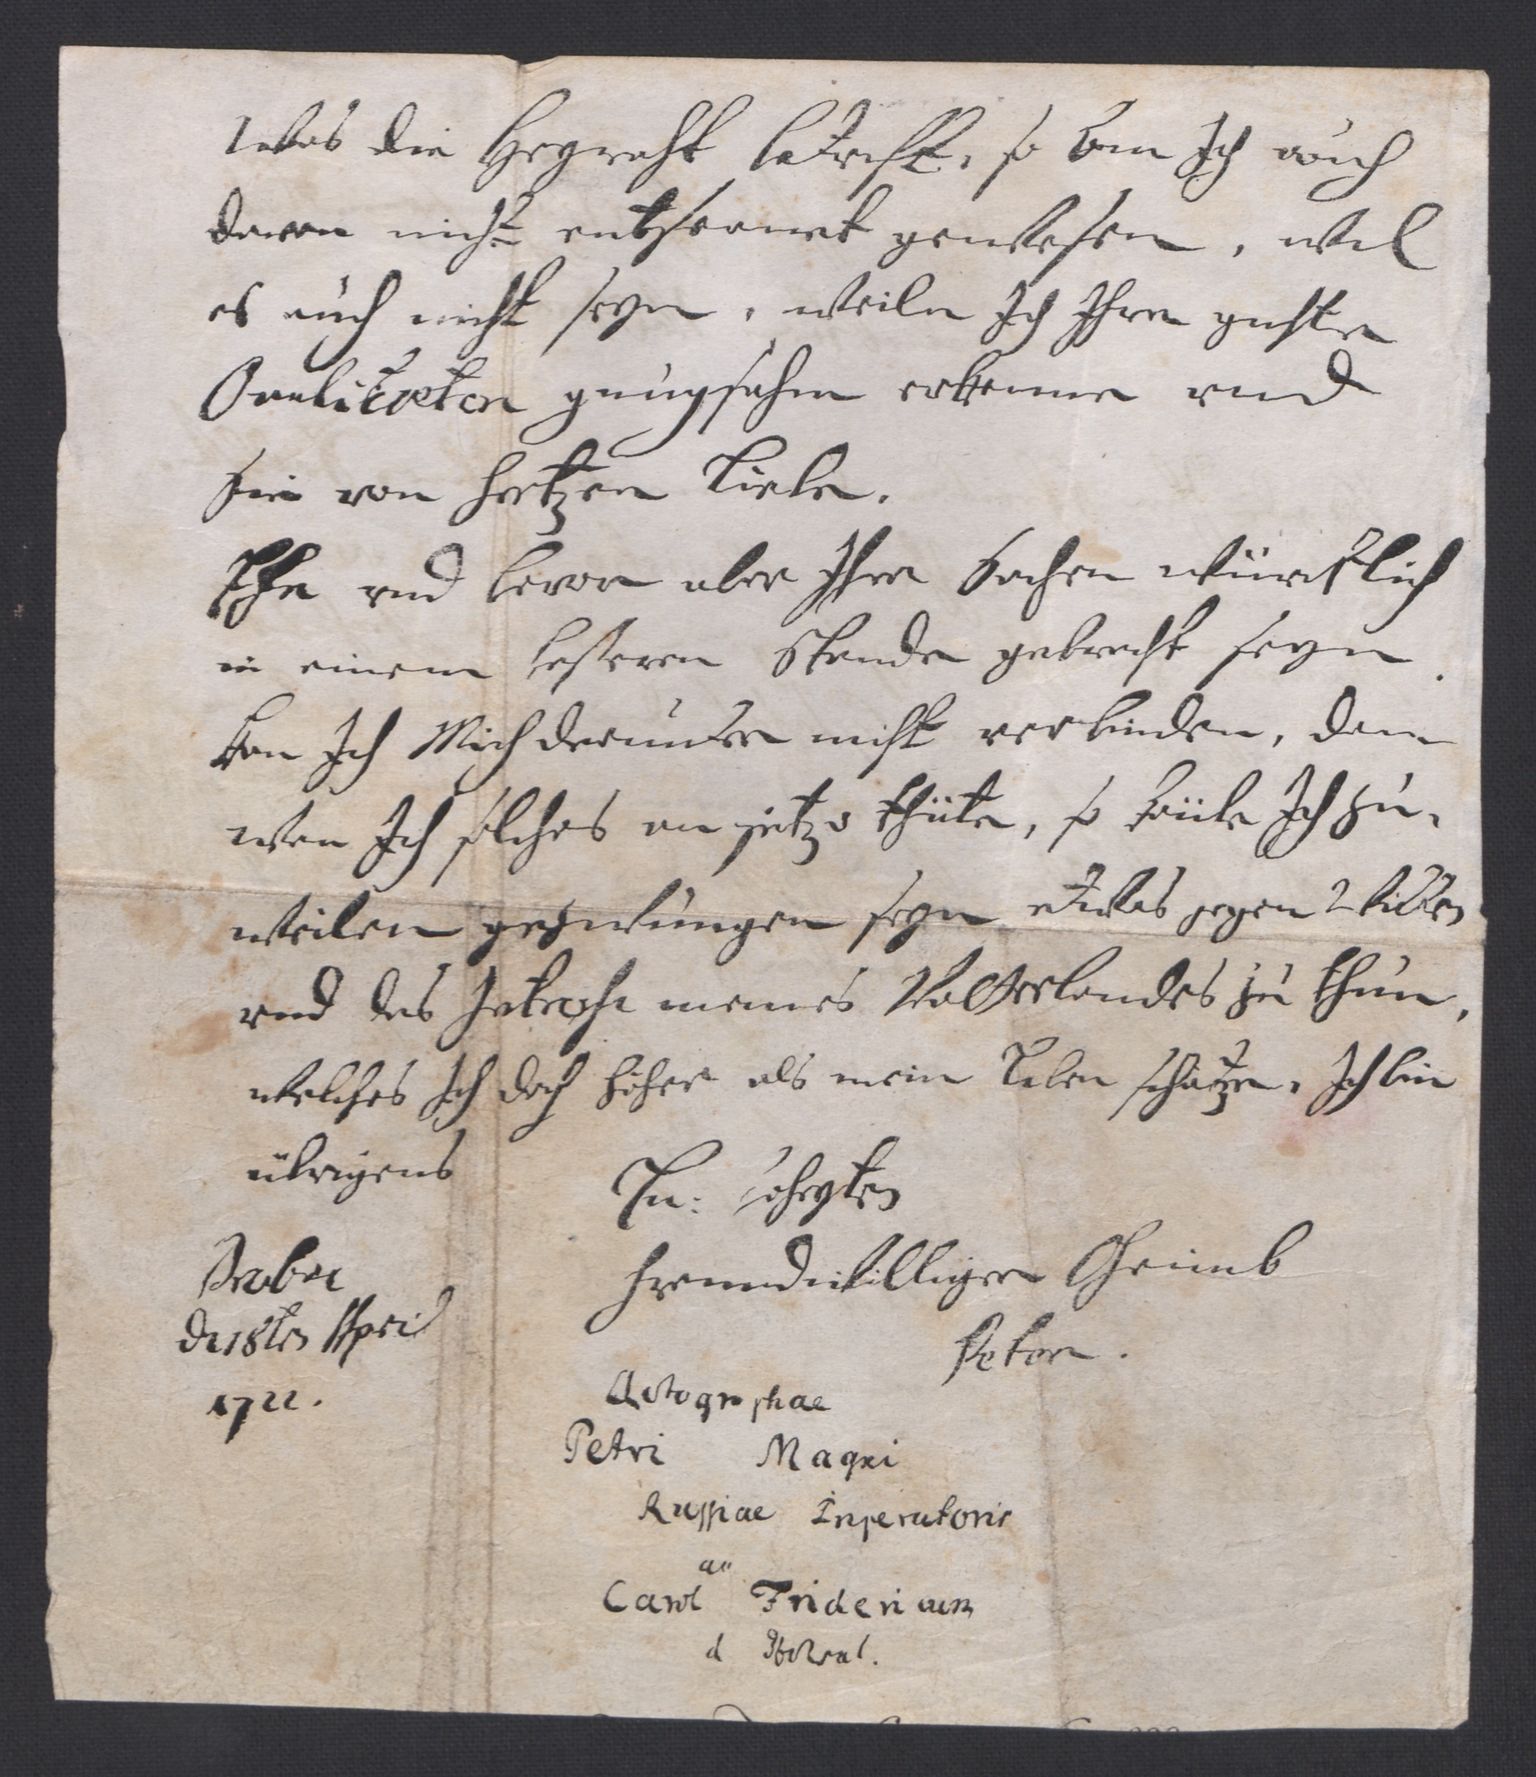 Was die Heyraht betrefft, so bin Ich auch
davon nicht entfernet gewesen, wil
es auch nicht seyn, weiln Ich Ihre guhte
Qualiteten gnugsahm erkenne und
Sie von Hertzen Liebe.
Ehe und bevor aber Ihre Sachen würcklich
in einem besseren Stande gebracht seyn
kan Ich Mich darunter nicht verbinden, denn
wan Ich solches an jetzo thäte, so würde Ich zu-
weilen gezwungen seyn etwas gegen Willen
und das Intresse meines Vatterlandes zu thun,
welches Ich doch höher als mein Leben schätze, Ich bin
übrigens
Ew: Hoheyten
freundwilliger Oheimb
Peter.
den 18ten April
1722.
Autographae
Petri Magni
Russiae Imperatoris
Carol Fridericum
d